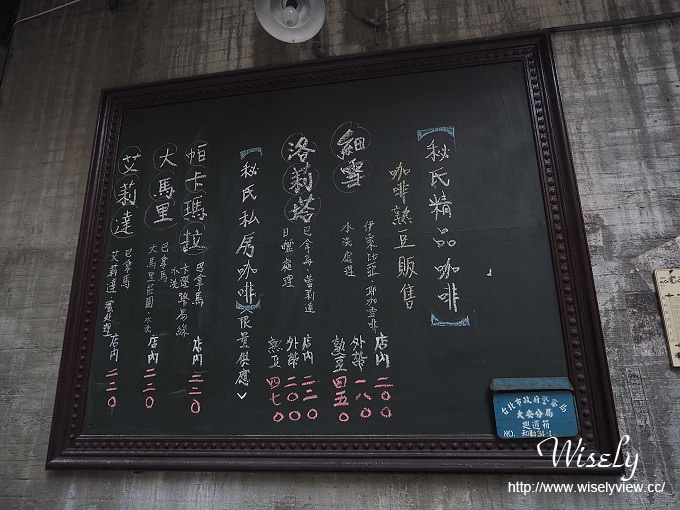 【秘氏精品咖啡】
咖啡熟豆販售
細雪
伊索比亞、耶加雪啡
水洗處理
店內 二〇〇
外帶 一八〇
熟豆 四五〇
洛莉塔
巴拿馬、
日曬處理
店內 二二〇
外帶 二〇〇
熟豆 四七〇
【秘氏私房咖啡】〈限量供應〉
帕卡瑪拉
巴拿馬
水洗
店內 二二〇
大馬里
巴拿馬
大馬里莊園、水洗
店內 二二〇
艾莉達
巴拿馬
艾莉達
店內 二二〇
台北市政府警察局
大安分局
巡邏箱
NO.
Wisely
http://www.wiselyview.cc/